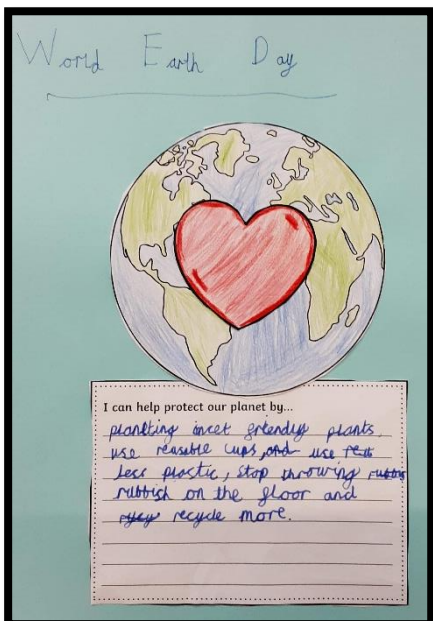 World Earth Day
I can help protect our planet by...
planting incet friendly plants,
use reusable cups, and use
less plastic, stop throwing rubbis
rubbish on the floor and
recycle more.